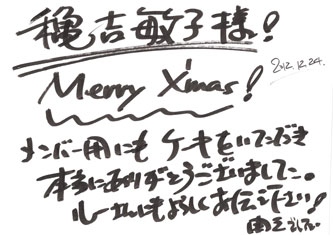 穐吉敏子様!
Merry X'mas!
2012.12.24.
メンバー用にも ケーキをいただき
本当にありがとうございました。
ルーさんにもよろしくお伝え下さい!